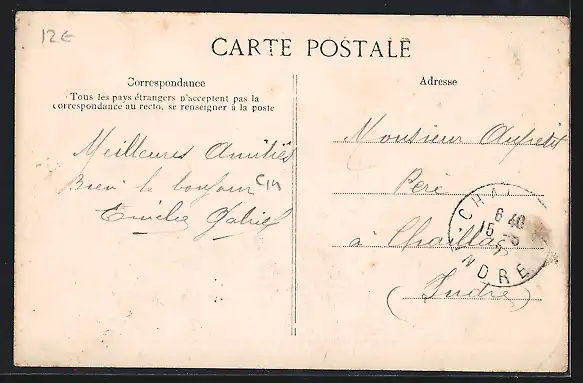 12€
CARTE POSTALE
Correspondance
Tous les pays étrangers n'acceptent pas la
correspondance au recto, se renseigner à la poste
Meilleures Amitiés
Bien le bonjour
Emilie Gabriel
Adresse
Monsieur
Père
à Chaillac
(Indre)
CHAI
6 40
15
NDRE